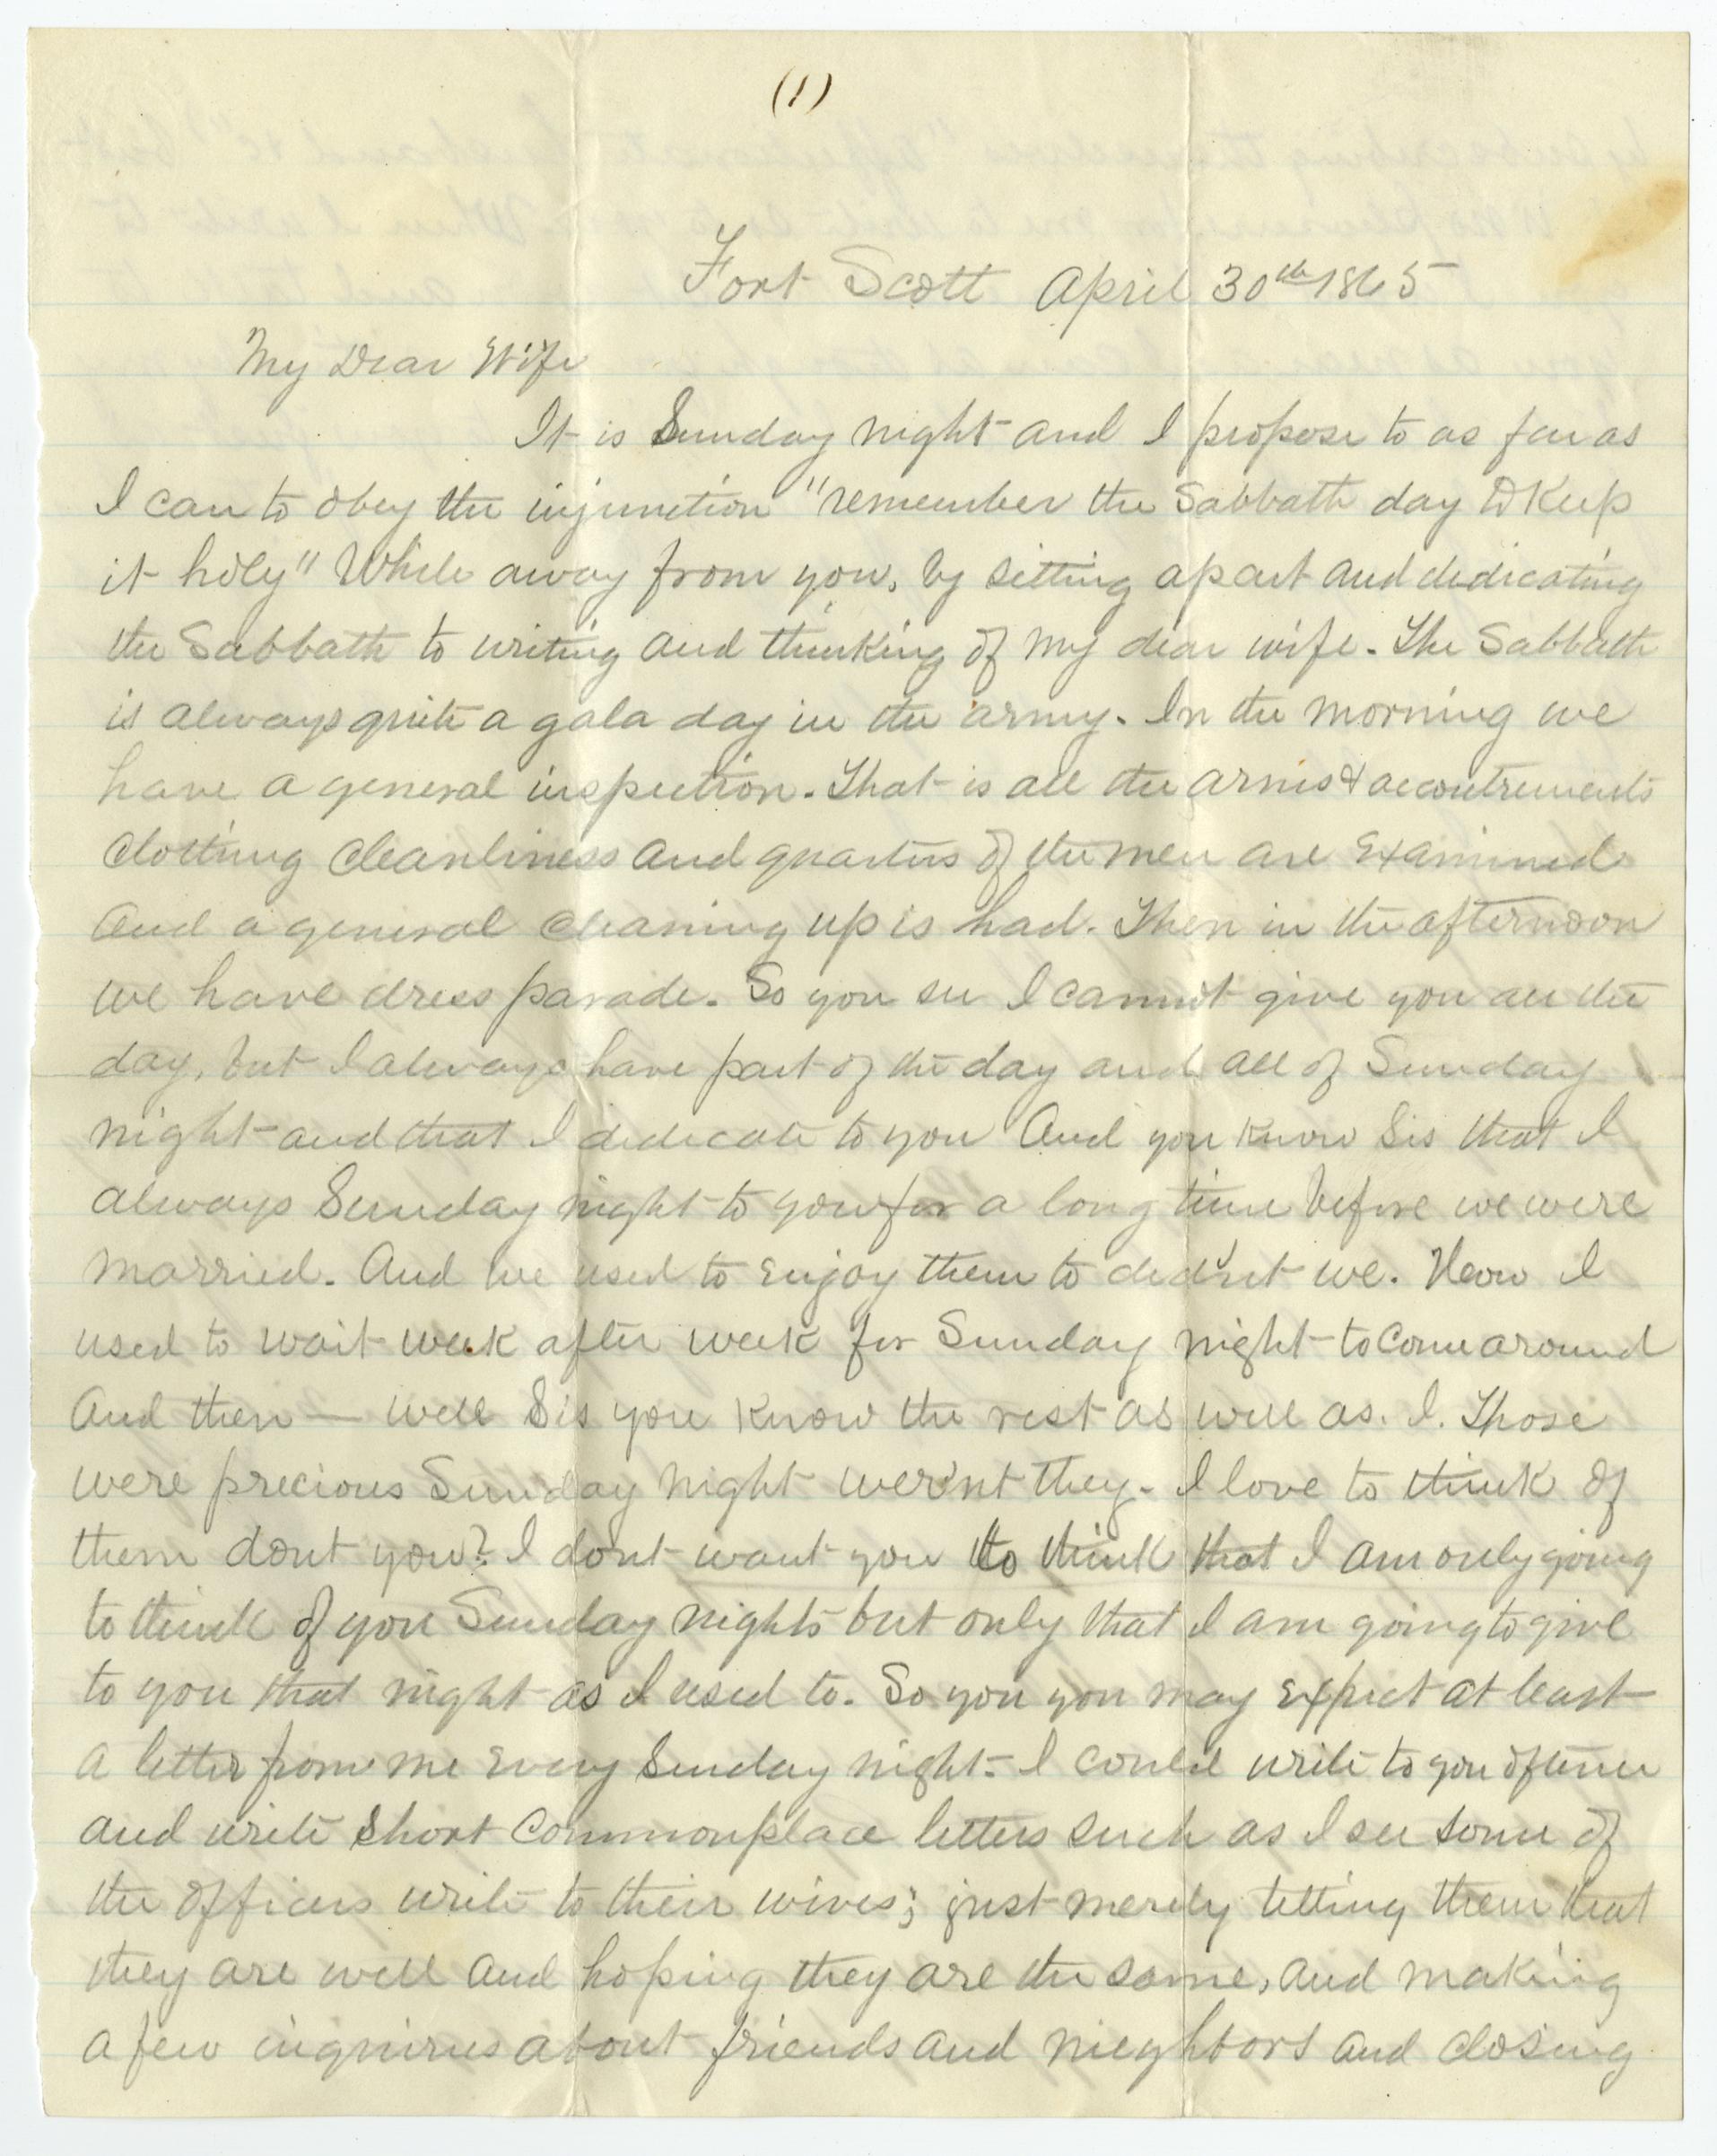 (1)
Fort Scott April 30th 1865
My Dear Wife
It is Sunday night and I propose to as far as
I can to obey the injunction "remember the Sabbath day to Keep
it holy" While away from you, by setting apart and dedicating
the Sabbath to writing and thinking of my dear wife. The Sabbath
is always quite a gala day in the army. In the morning we
have a general inspection. That is all the arms & accoutrements
Clothing Cleanliness and quarters of the men are Examined
And a general cleaning up is had. Then in the afternoon
we have dress parade. So you see I cannot give you all the
day, but I always have part of the day and all of Sunday
night and that I dedicate to you And you know Sis that I
always Sunday night to you for a long time before we were
married. And we used to enjoy them to did'nt we. How I
used to wait week after week for Sunday night to come around
And then — well Sis you Know the rest as well as. I. Those
were precious Sunday night wer'nt they. I love to think of
them dont you? I dont want you to think that I am only going
to think of you Sunday nights but only that I am going to give
to you that night as I used to. So you you may expect at least
a letter from me Every Sunday night. I could write to you oftener
and write short Commonplace letters such as I see some of
the officers write to their wives; just merely telling them that
they are well and hoping they are the same, and making
a few inquiries about friends and nieghbors and closing